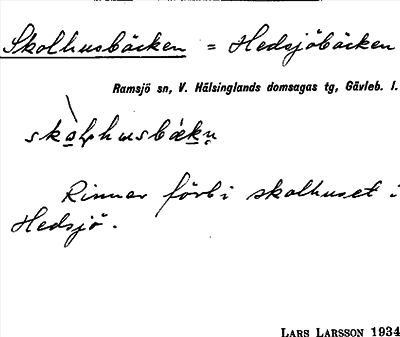 Skolhusbäcken = Hedsjöbäcken
Ramsjö sn, V. Hälsinglands domsagas tg, Gävleb. l.
Rinner förbi skolhuset i
Hedsjö.
LARS LARSSON 1934